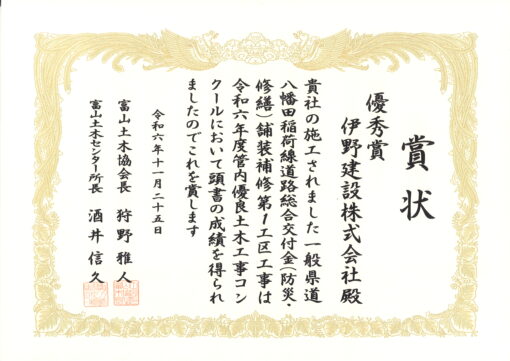 賞状
優秀賞
伊野建設株式会社殿
貴社の施工されました一般県道
八幡田稲荷線道路総合交付金(防災・
修繕)舗装補修第1工区工事は
令和六年度管内優良土木工事コン
クールにおいて頭書の成績を得られ
ましたのでこれを賞します
令和六年十一月二十五日
富山土木協会長 狩野雅人
富山土木センター所長 酒井信久